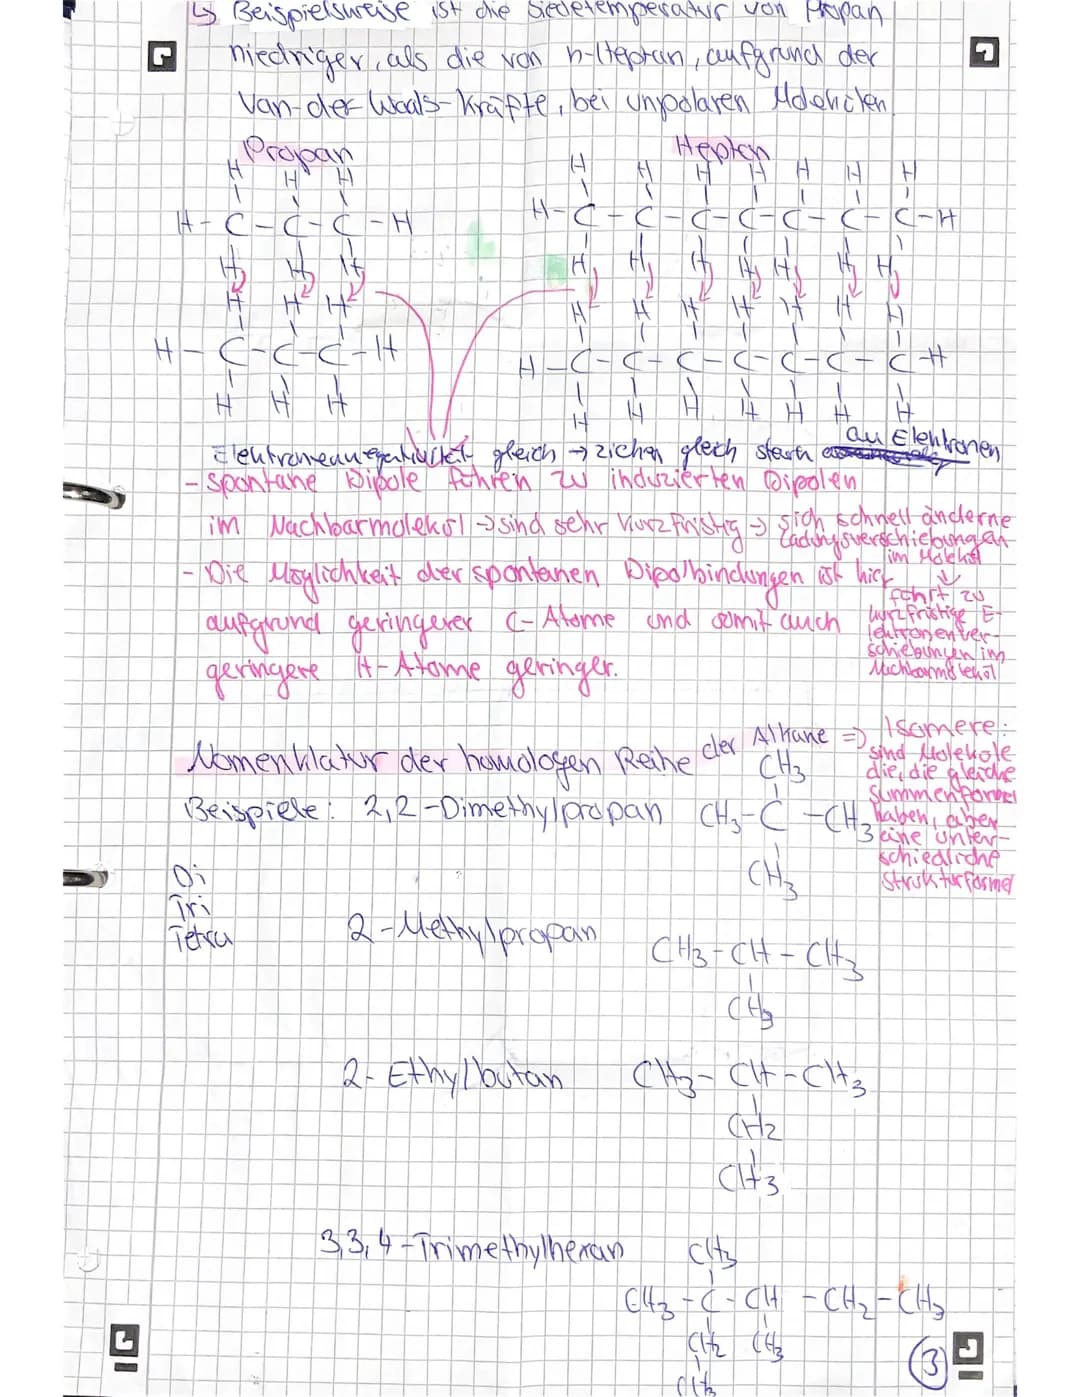 ↳ Beispielsweise ist die Siedetemperatur von Propan
niedriger, als die von n-Heptan, aufgrund der
Van-der Waals-Kräfte, bei unpolaren Molekülen.
Propan Heptan
H H H H H H H H H H
H-C-C-C-H H-C-C-C-C-C-C-C-H
H H H H H H H H H H
H H H H H H H H H H
H-C-C-C-H H-C-C-C-C-C-C-C-H
H H H H H H H H H H
Elektronenegativität gleich → ziehen gleich stark an Elektronen
- Spontane Dipole führen zu induzierten Dipolen
im Nachbarmolekül → sind sehr kurzfristig → sich schnell änderne
Ladungsverschiebungen
im Molekül
↓
führt zu
kurzfristige E-
lektronenver-
schiebungen im
Nachbarmolekül
- Die Möglichkeit der spontanen Dipolbindungen ist hier
aufgrund geringerer C-Atome und somit auch
geringere H-Atome geringer.
Nomenklatur der homologen Reihe der Alkane ⇒ Isomere:
sind Moleküle
die, die gleiche
Summenformel
haben, aber
eine unter-
schiedliche
Strukturformel
Beispiele: 2,2-Dimethylpropan
CH3
CH3-C-CH3
CH3
Di
Tri
Tetra
2-Methylpropan
CH3-CH-CH3
CH3
2-Ethylbutan
CH3-CH-CH3
CH2
CH3
3,3,4-Trimethylhexan
CH3
CH3-C-CH-CH2-CH3
CH2 CH3
CH3
3